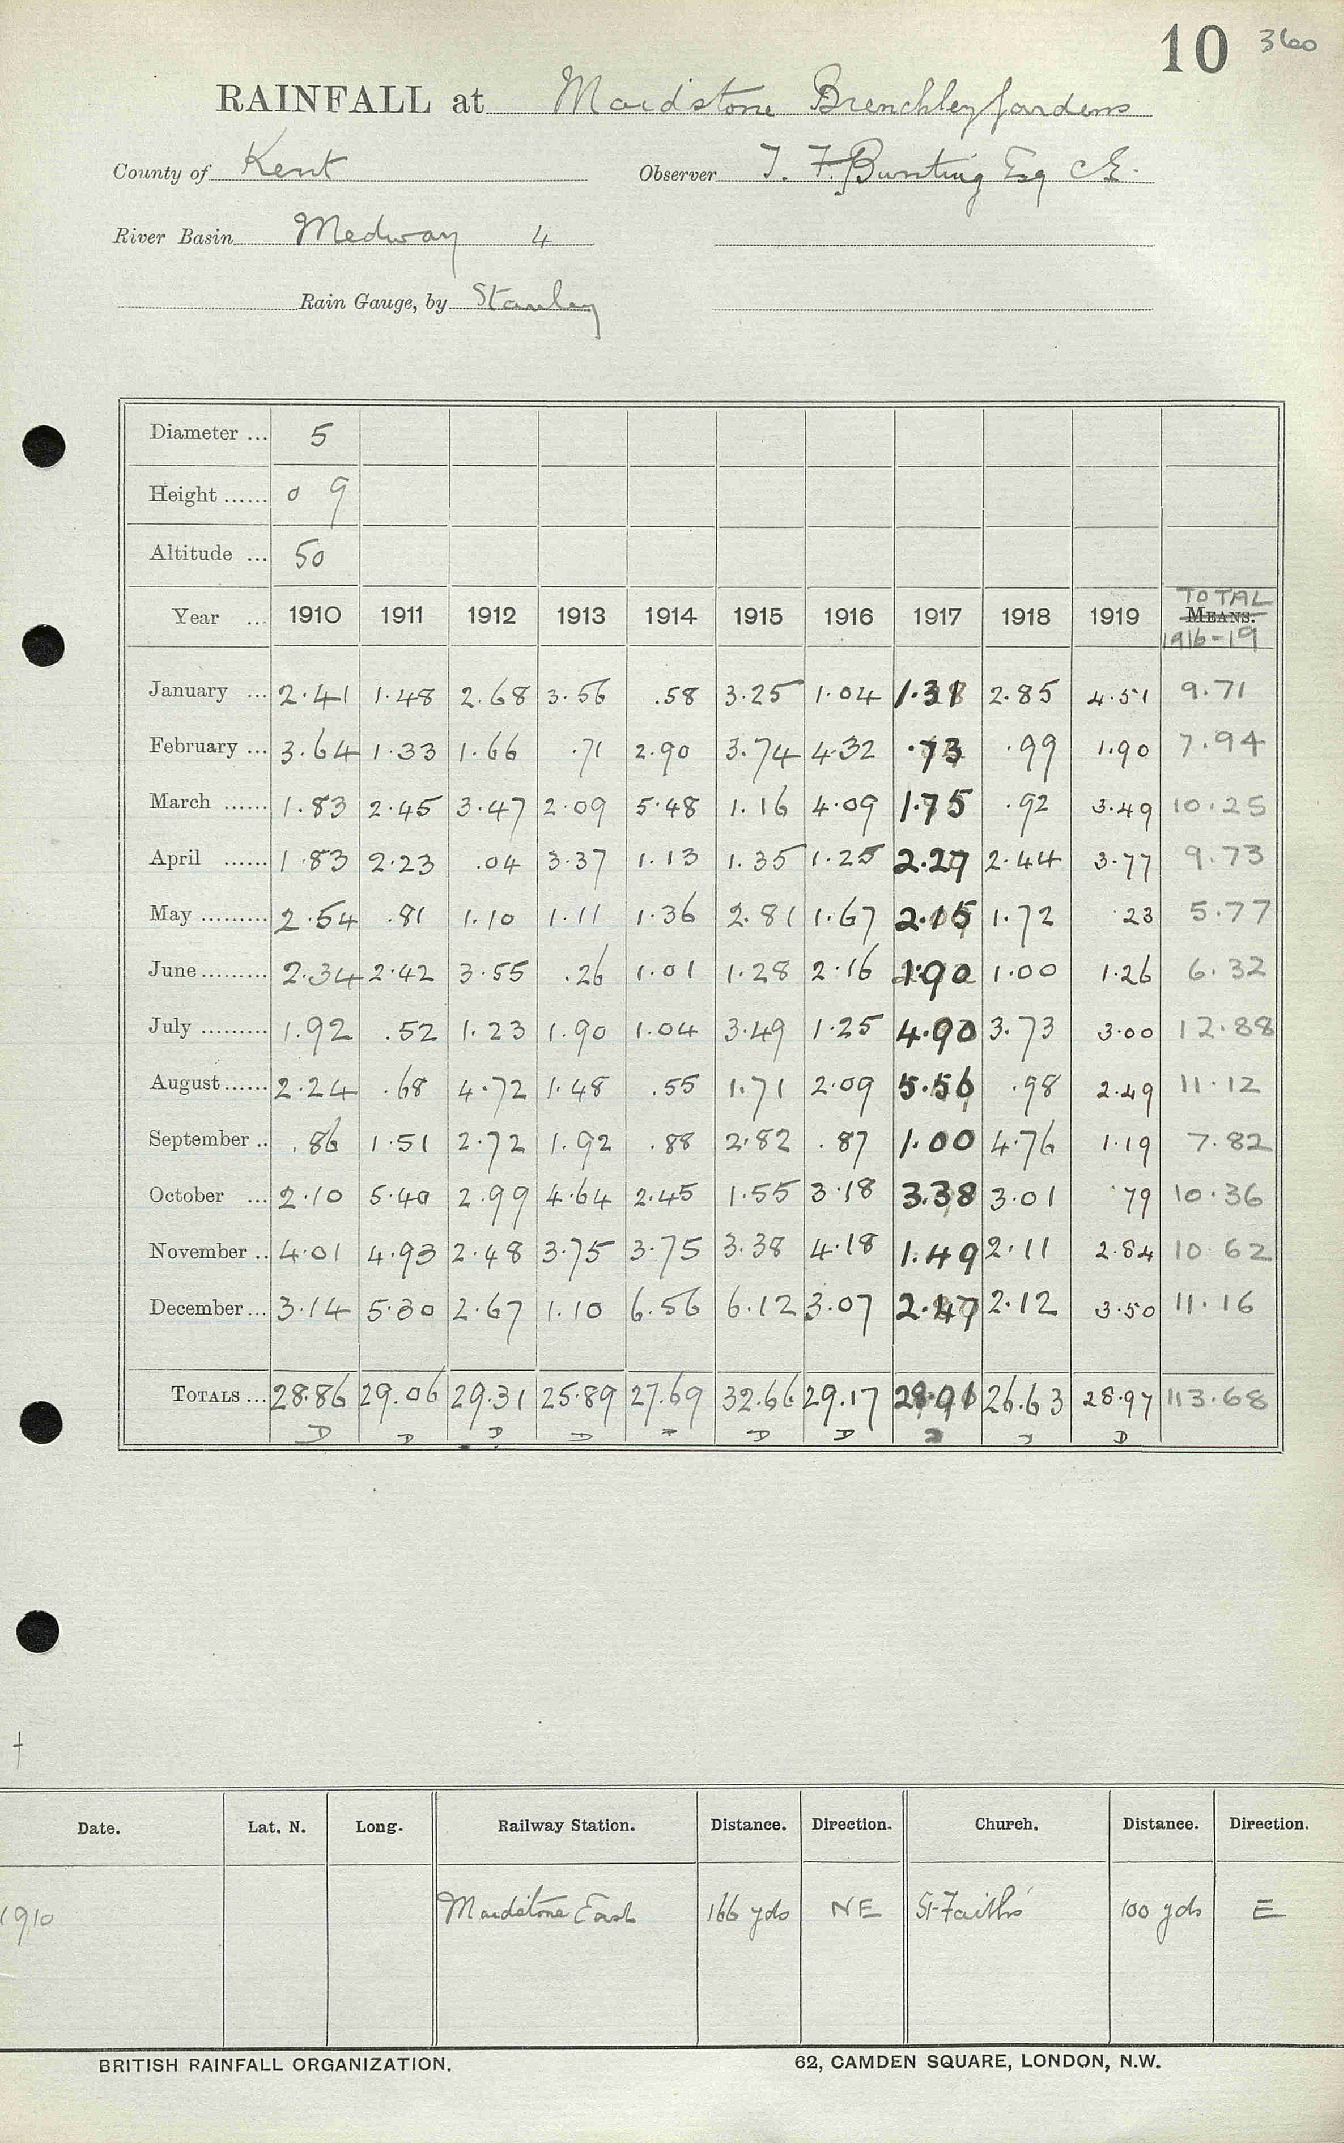 10 360
RAINFALL at Maidstone Brenchley Gardens
County of Kent Observer T. F. Bunting Esq C.E.
River Basin Medway 4
Rain Gauge, by Stanley
Diameter ... 5
Height ...... 0 9
Altitude ... 50
Year ... 1910 1911 1912 1913 1914 1915 1916 1917 1918 1919 TOTAL MEANS. 1916-19
January ... 2.41 1.48 2.68 3.56 .58 3.25 1.04 1.31 2.85 4.51 9.71
February ... 3.64 1.33 1.66 .71 2.90 3.74 4.32 .73 .99 1.90 7.94
March ...... 1.83 2.45 3.47 2.09 5.48 1.16 4.09 1.75 .92 3.49 10.25
April ...... 1.83 2.23 .04 3.37 1.13 1.35 1.25 2.27 2.44 3.77 9.73
May ......... 2.54 .81 1.10 1.11 1.36 2.81 1.67 2.15 1.72 .23 5.77
June ......... 2.34 2.42 3.55 .26 1.01 1.28 2.16 1.90 1.00 1.26 6.32
July ......... 1.92 .52 1.23 1.90 1.04 3.49 1.25 4.90 3.73 3.00 12.88
August ...... 2.24 .68 4.72 1.48 .55 1.71 2.09 5.56 .98 2.49 11.12
September .. .86 1.51 2.72 1.92 .88 2.82 .87 1.00 4.76 1.19 7.82
October ... 2.10 5.40 2.99 4.64 2.45 1.55 3.18 3.38 3.01 .79 10.36
November .. 4.01 4.93 2.48 3.75 3.75 3.38 4.18 1.49 2.11 2.84 10.62
December ... 3.14 5.30 2.67 1.10 6.56 6.12 3.07 2.47 2.12 3.50 11.16
TOTALS ... 28.86 29.06 29.31 25.89 27.69 32.66 29.17 28.91 26.63 28.97 113.68
D D D D D D D D
Date. Lat. N. Long. Railway Station. Distance. Direction. Church. Distance. Direction.
1910 Maidstone East 166 yds NE St Faith's 100 yds E
BRITISH RAINFALL ORGANIZATION. 62, CAMDEN SQUARE, LONDON, N.W.